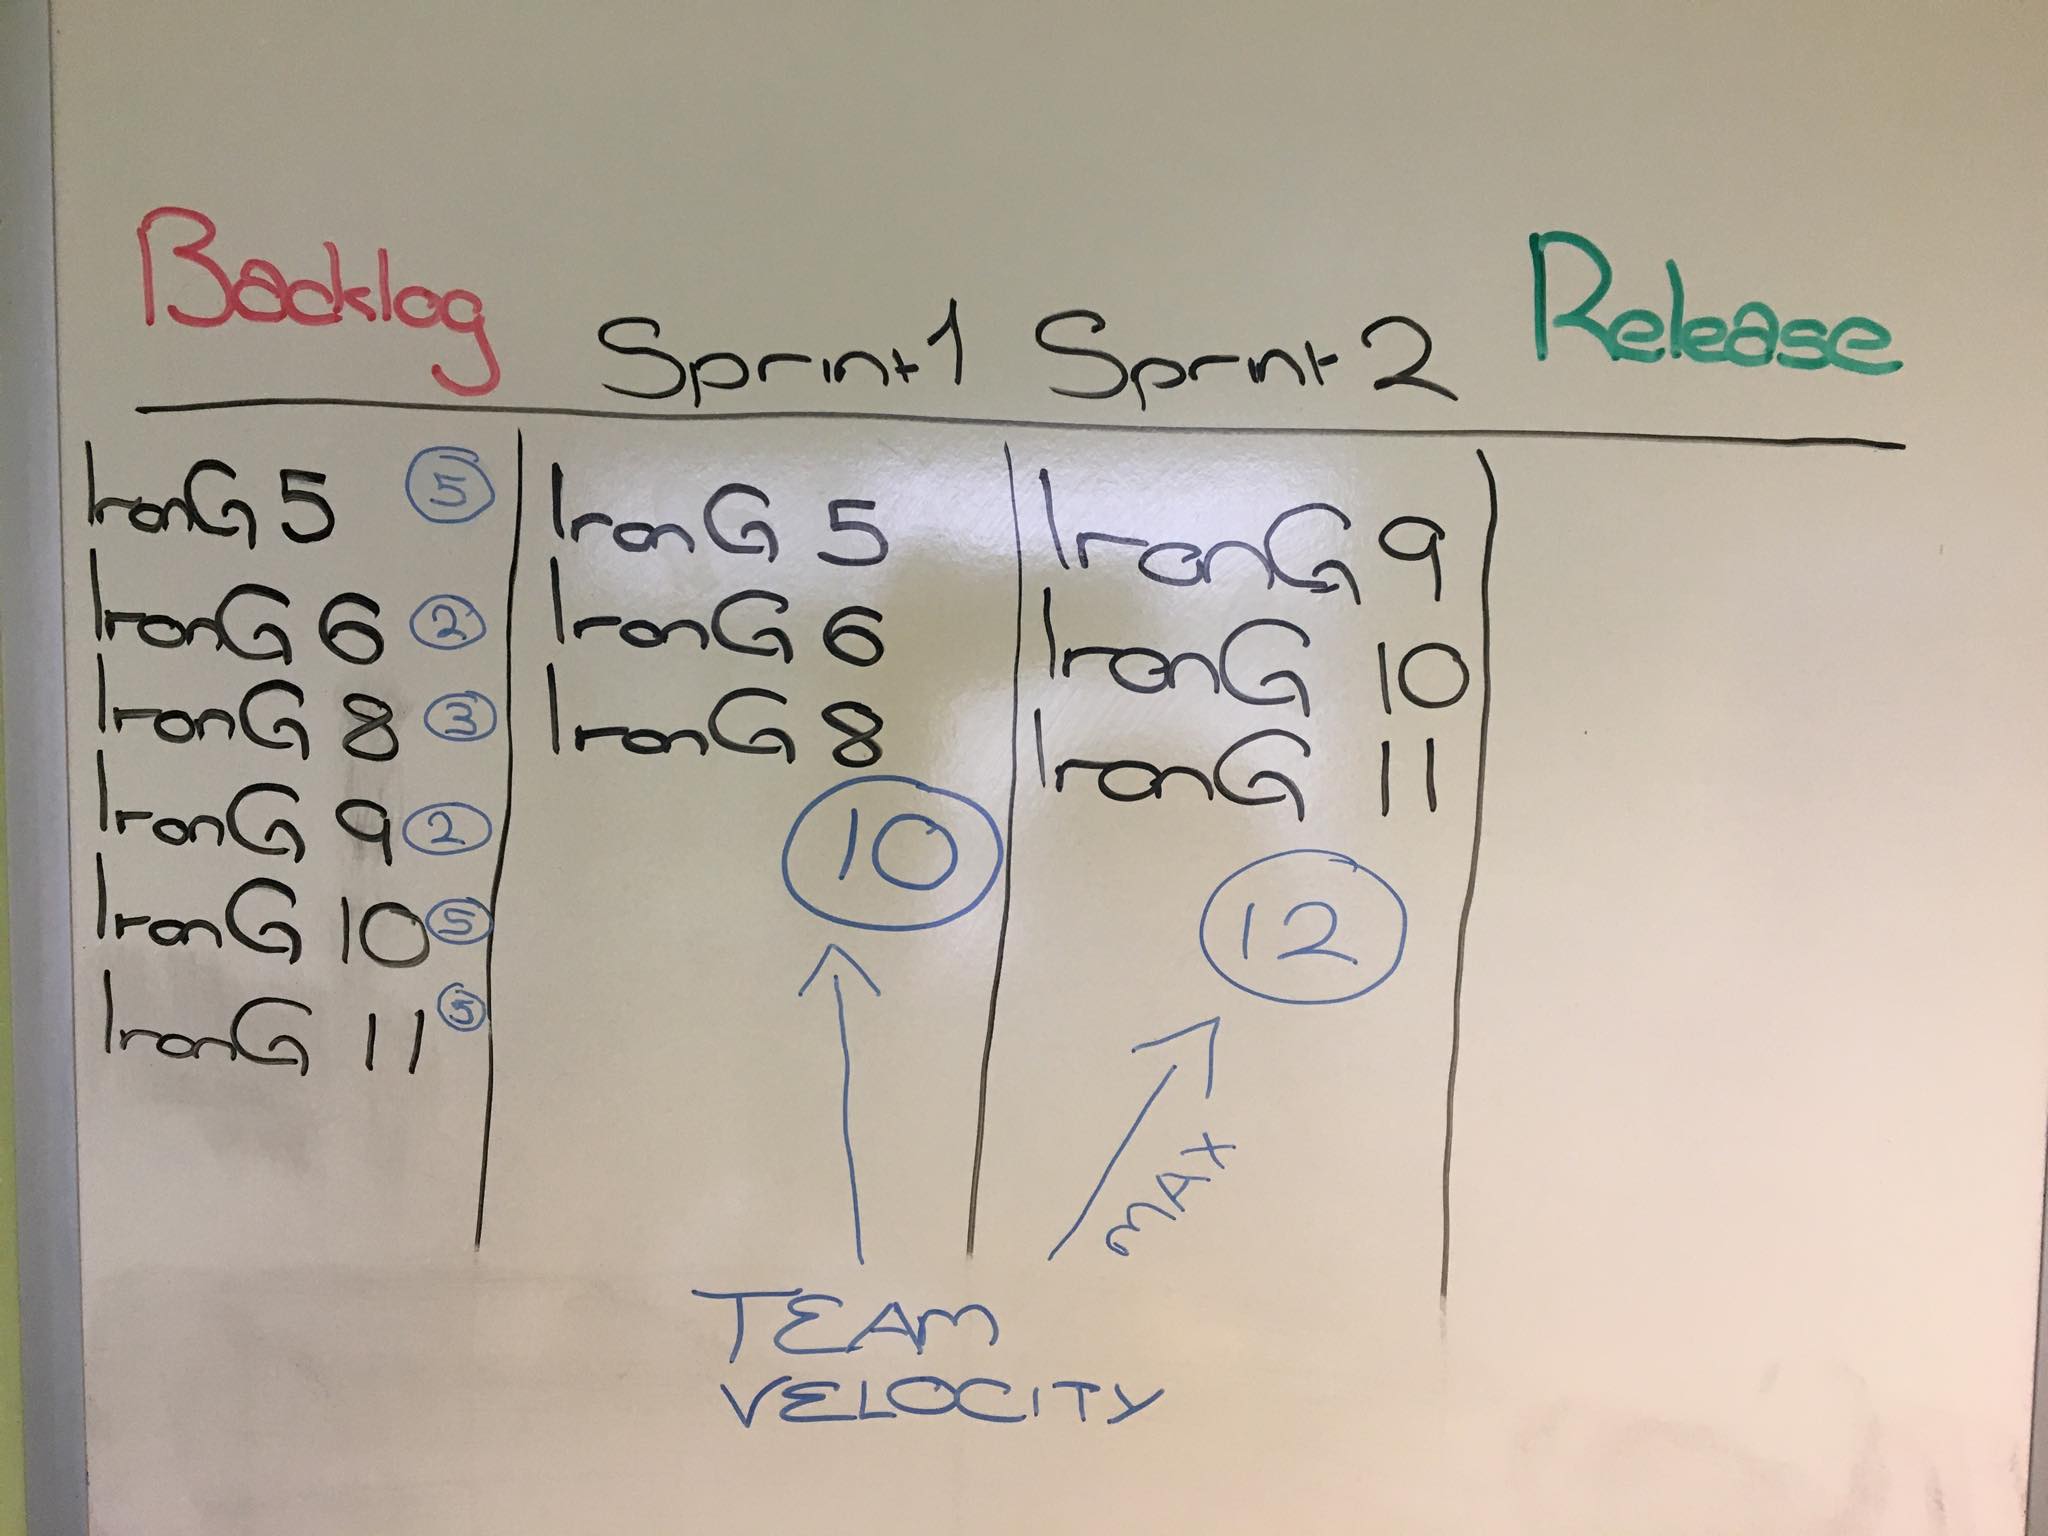 Backlog
Sprint 1
Sprint 2
Release
IronG 5 5
IronG 6 2
IronG 8 3
IronG 9 2
IronG 10 5
IronG 11 5
IronG 5
IronG 6
IronG 8
10
IronG 9
IronG 10
IronG 11
12
MAX
TEAM
VELOCITY